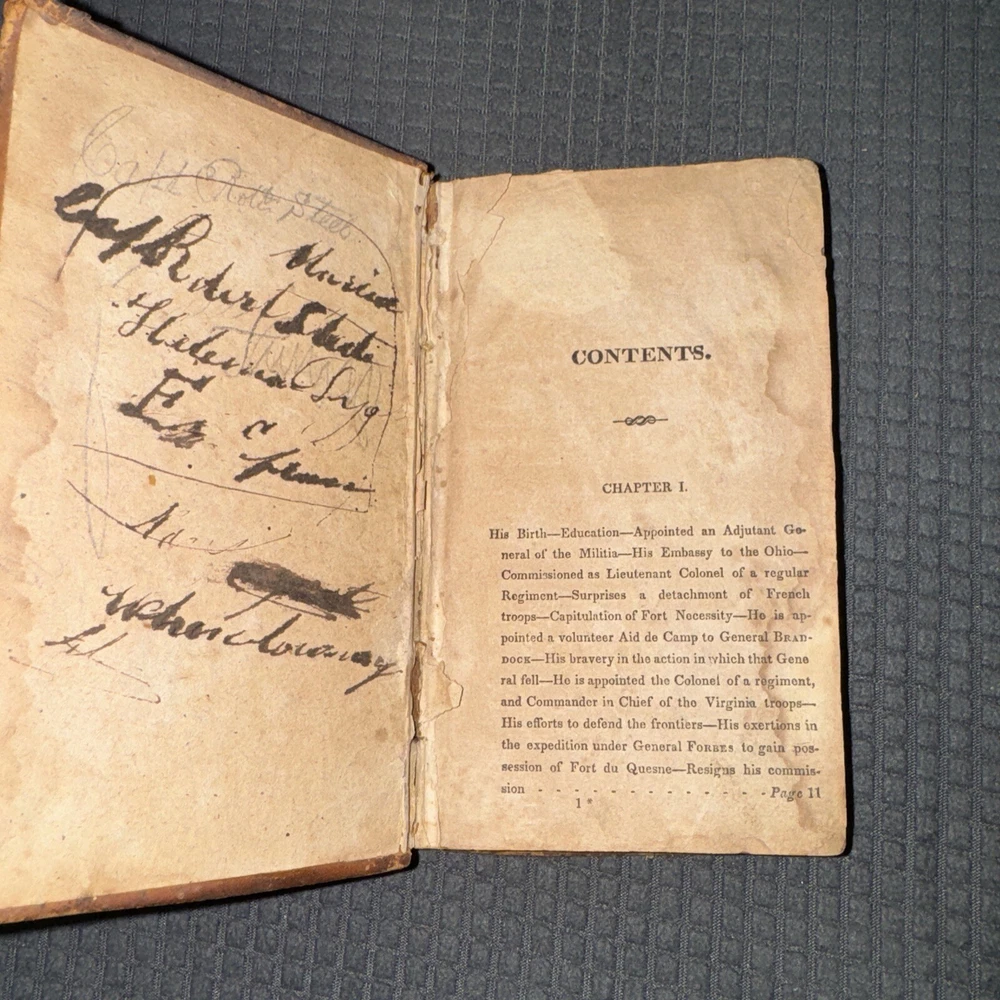 Capt Robt Steel
Capt Robert Steele
CONTENTS.
CHAPTER I.
His Birth—Education—Appointed an Adjutant Ge-
neral of the Militia—His Embassy to the Ohio—
Commissioned as Lieutenant Colonel of a regular
Regiment—Surprises a detachment of French
troops—Capitulation of Fort Necessity—He is ap-
pointed a volunteer Aid de Camp to General BRAD-
DOCK—His bravery in the action in which that Gene
ral fell—He is appointed the Colonel of a regiment,
and Commander in Chief of the Virginia troops—
His efforts to defend the frontiers—His exertions in
the expedition under General FORBES to gain pos-
session of Fort du Quesne—Resigns his commis-
sion - - - - - - - - - - - - - Page 11
1 *